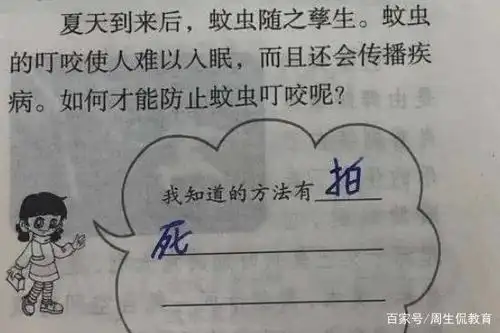 夏天到来后，蚊虫随之孳生。蚊虫
的叮咬使人难以入眠，而且还会传播疾
病。如何才能防止蚊虫叮咬呢？
我知道的方法有拍
死
百家号/周生侃教育